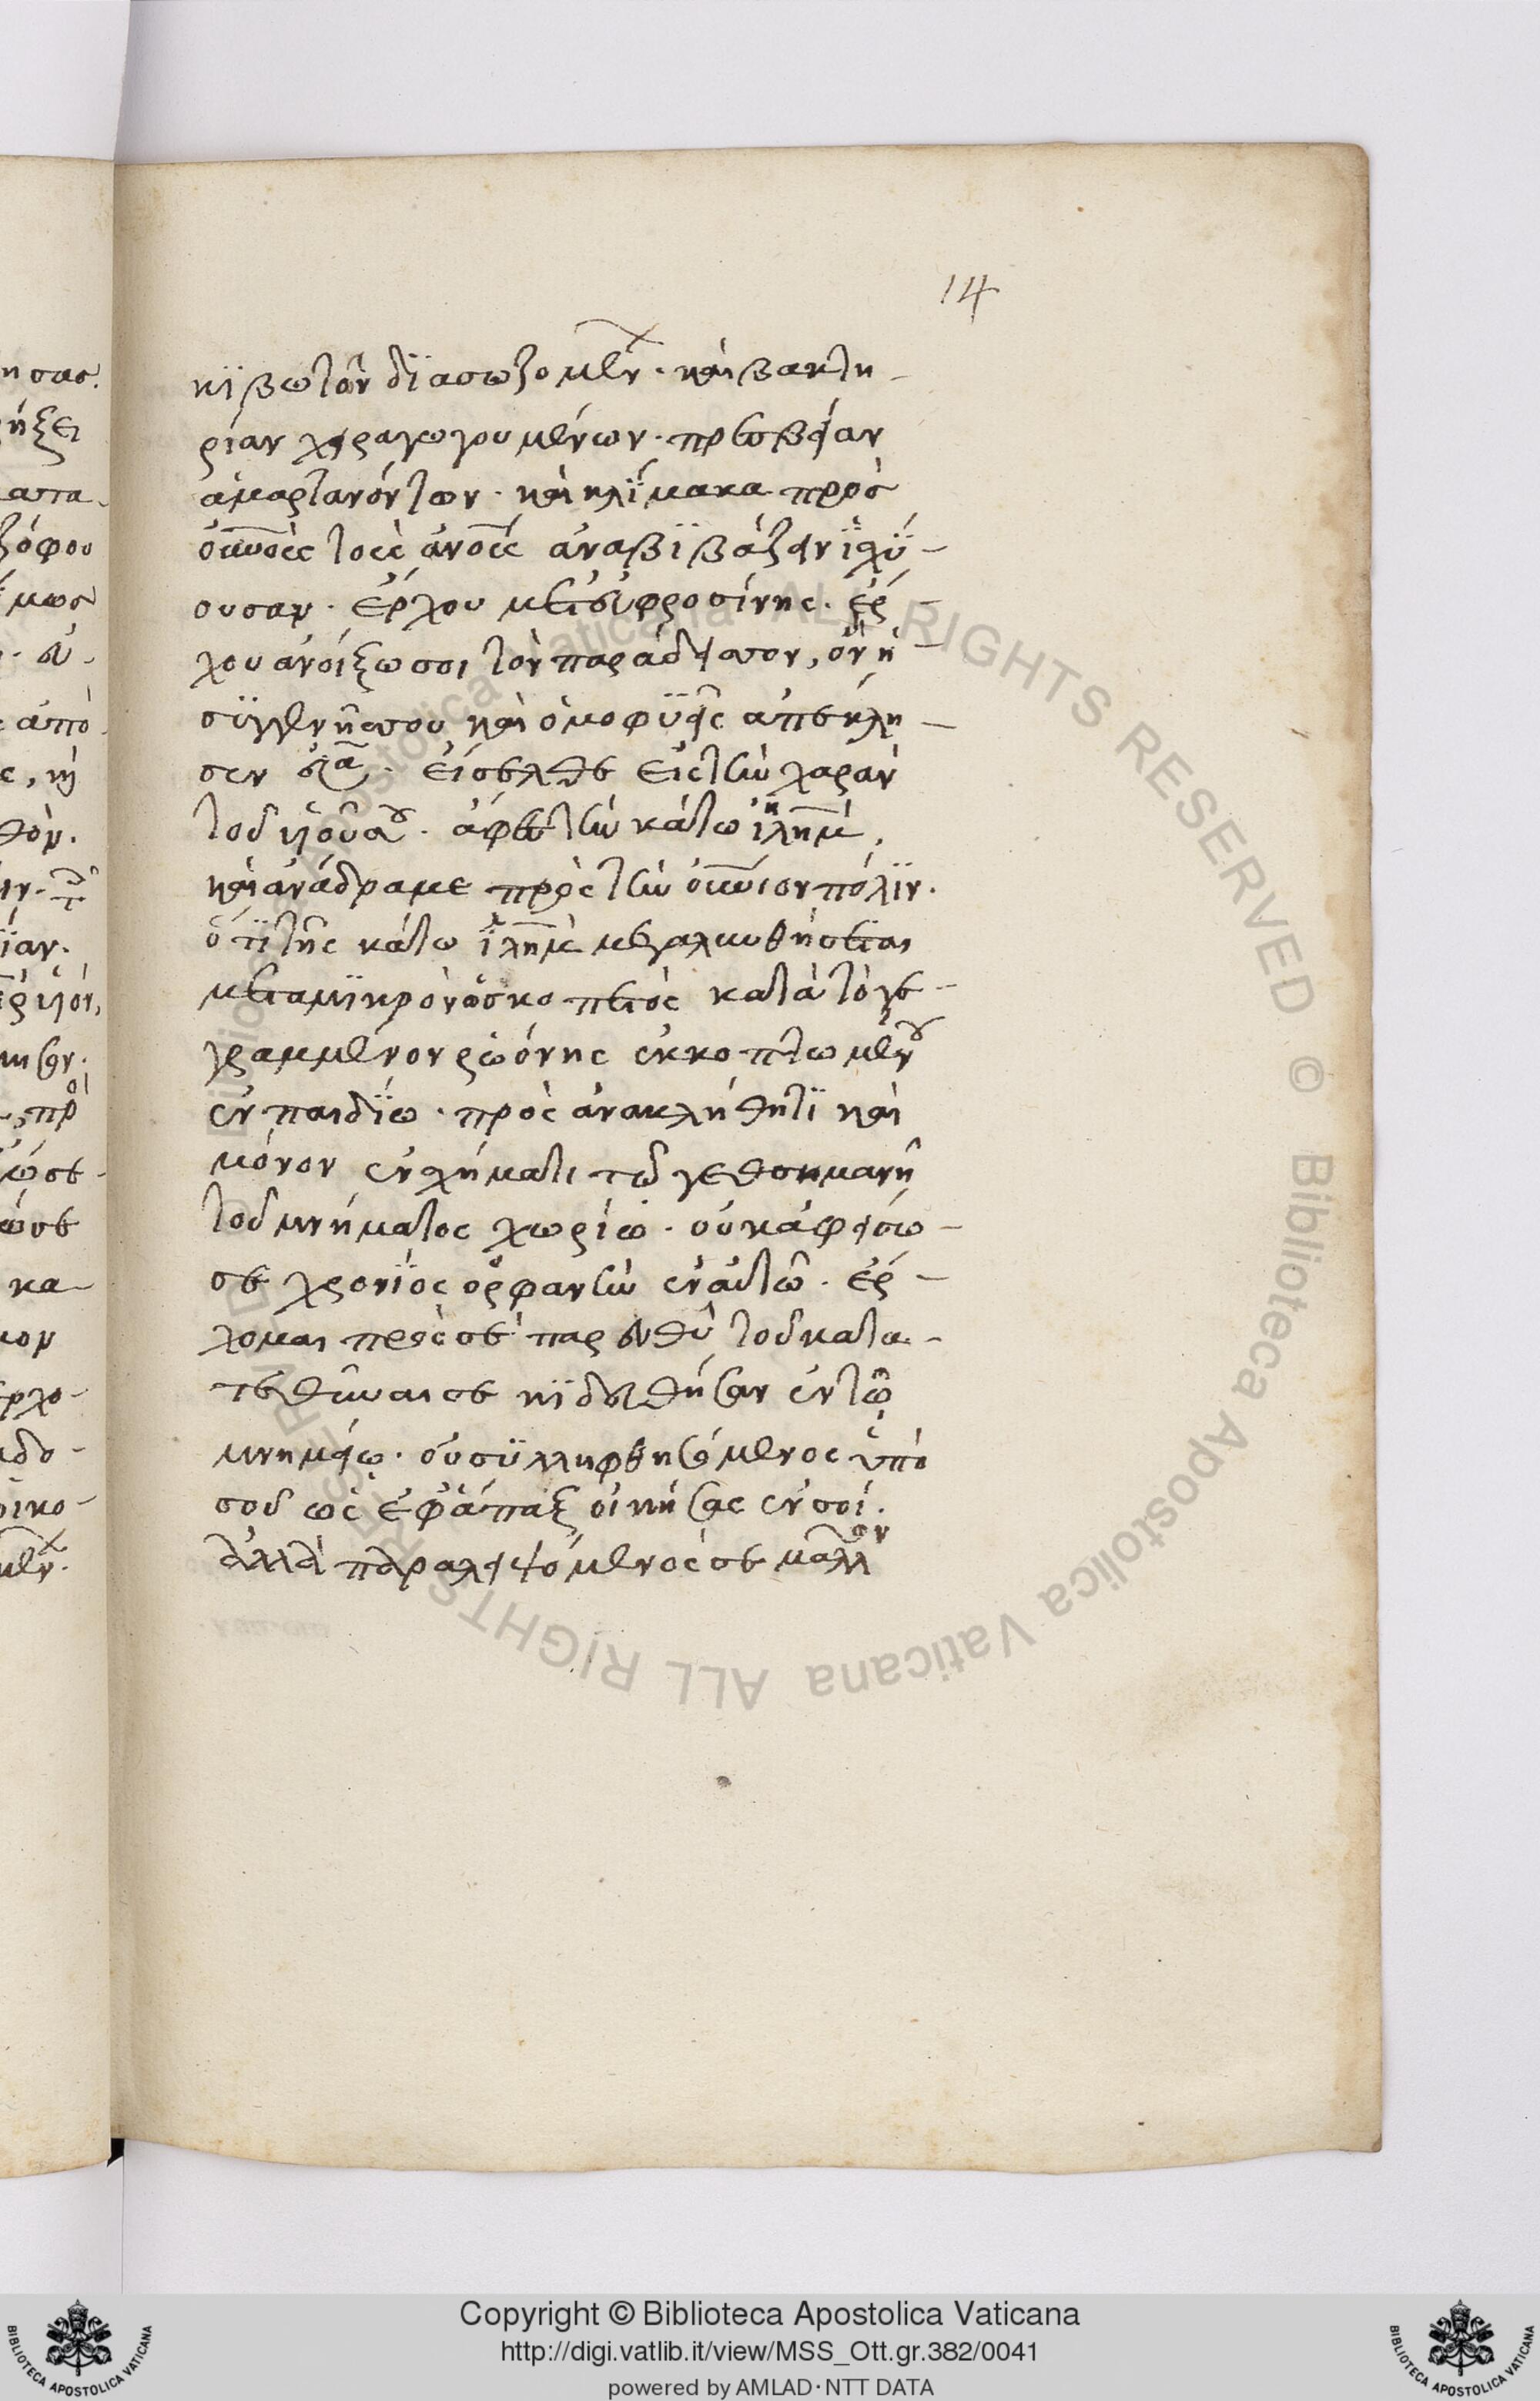 14
κϊβωτὸν δϊασωζομέν· καὶ βακτη-
ρίαν χειραγωγουμένων· πρεσβείαν
ἁμαρτανόντων· καὶ κλίμακα πρὸς
οὐνοὺς τοὺς ἀνοὺς ἀναβϊβάζειν ἰσχύ-
ουσαν· ἔρχου μετ' εὐφροσίνης· ἔρ-
χου ἀνοίξω σοι τὸν παράδεισον, ὃν ἡ
συγγενής σου καὶ ὁμοφυὴς ἀπέκλη-
σεν εὔα· εἴσελθε εἰς τὴν χαρὰν
τοῦ υἱοῦ σου· ἄφες τὴν κάτω ἰλημ,
καὶ ἀνάδραμε πρὸς τὴν οὐνιον πόλϊν·
ὅτϊ τῆς κάτω ἰλημ μεγαλυνθήσεται
μετὰ μϊκρὸν ὁ κοπετὸς κατὰ τὸ γε-
γραμμένον ῥοόνης ἐκκοπτωμένου
ἐν παιδίω· προσανακλήθητϊ καὶ
μόνον ἐν σχήματι τῶ γεθσημανῆ
τοῦ μνήματος χωρίω· οὐκ ἀφείσω
σε χρονίος ὀρφανὴν ἐν αὐτῶ· ἔρ-
χομαι πρὸς σὲ παρευθὺ τοῦ κατα-
τεθῆναί σε κϊδευθήσαν ἐν τῶ
μνημείω· οὐ συλληφθησόμενος ὑπὸ
σοῦ ὡς ἐφάπαξ οἰκήσας ἐν σοί·
ἀλλὰ παραλειψόμενός σε μᾶλλον
Copyright © Biblioteca Apostolica Vaticana
http://digi.vatlib.it/view/MSS_Ott.gr.382/0041
powered by AMLAD·NTT DATA